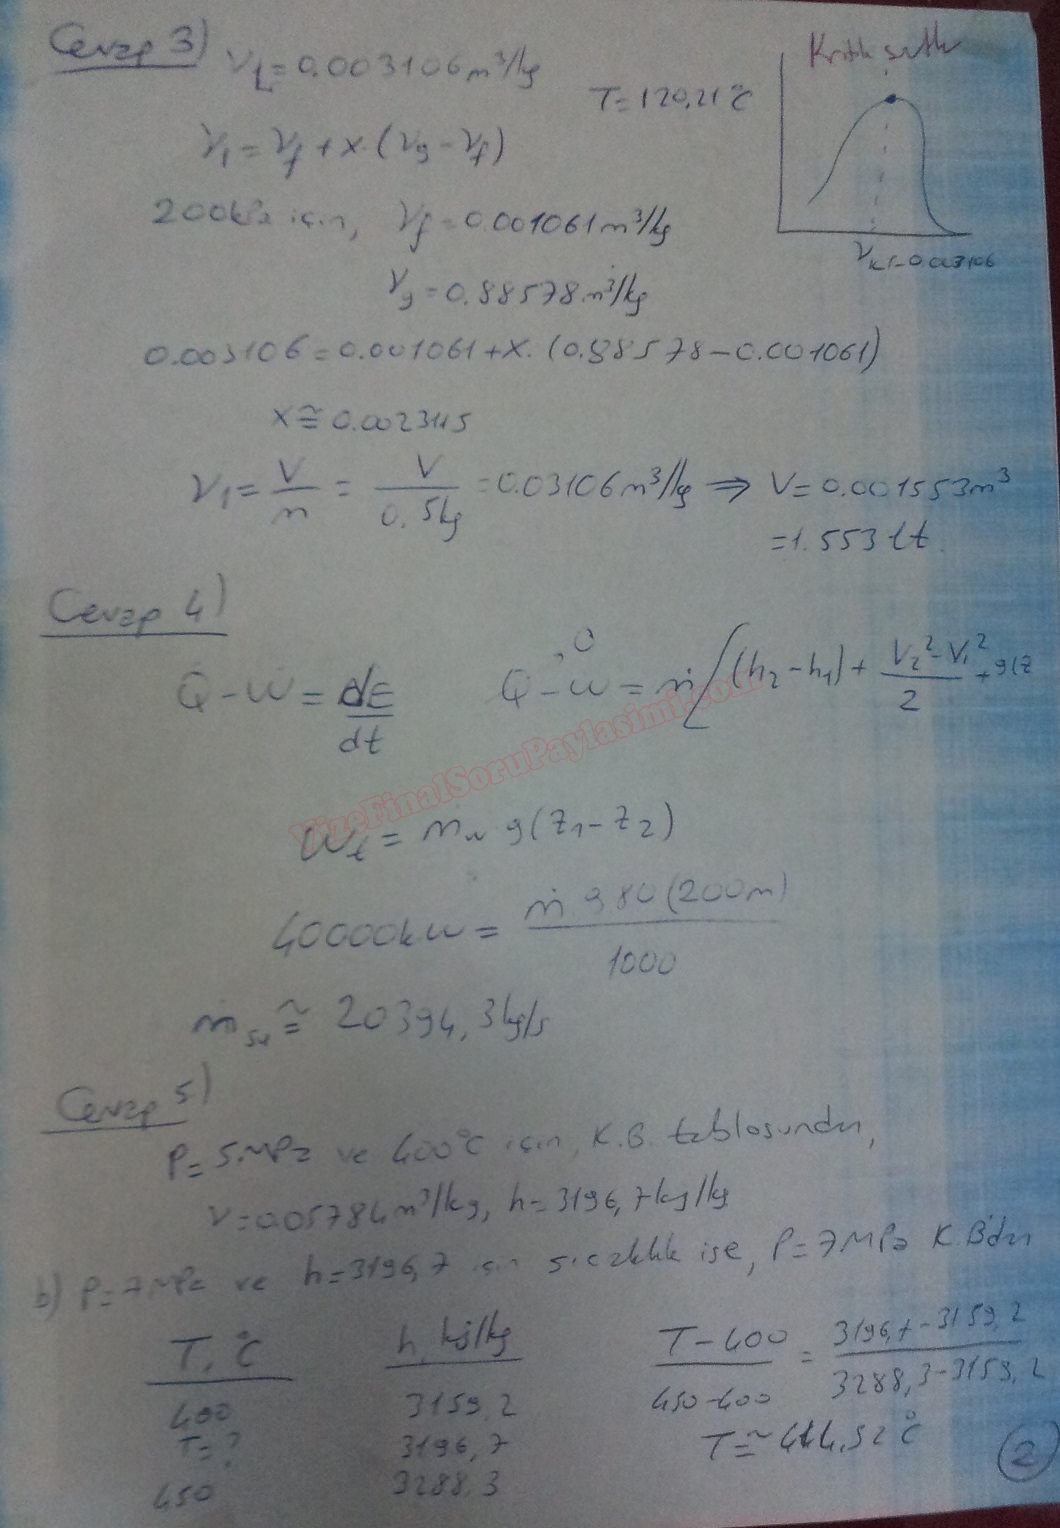 Cevap 3)
V1=0.003106 m³/kg
T=120,21°C
Kritik
V1=Vf+x.(Vg-Vf)
200kPa için, Vf=0.001061m³/kg
Vg=0.88578m³/kg
0.003106=0.001061+x.(0.88578-0.001061)
x≅0.0023115
V1=V/m = V/0.5kg =0.03106m³/kg ⇒ V=0.001553m³
=1.553lt.
Cevap 4)
Q-W=dE/dt
Q-W=ṁ[(h2-h1)+(V2²-V1²)/2+g(z
0
VizeFinalSoruPaylasimi.com
Wt=ṁ g(z1-z2)
40000kW=ṁ 9.80(200m)/1000
ṁsu≅20394,3kg/s
Cevap 5)
P=5MPa ve 400°C için, K.B. tablosundan,
V=0.05784m³/kg, h=3196,7kj/kg
b) P=7MPa ve h=3196,7 için sıcaklık ise, P=7MPa K.B'dan
T,°C h, kj/kg
400 3159,2
T=? 3196,7
450 3288,3
(T-400)/(450-400)=(3196,7-3159,2)/(3288,3-3159,2)
T≅414,52°C
2